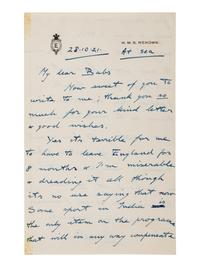 H.M.S. RENOWN.
28.10.21. At sea
My dear Babs
How sweet of you to
write to me, thank you so
much for your kind letter
& good wishes.
Yes its terrible for me
to have to leave England for
8 months & I'm miserable
& dreading it all though
its no use saying that now
Some sport in India is
the only item on the programme
that will in any way compensate